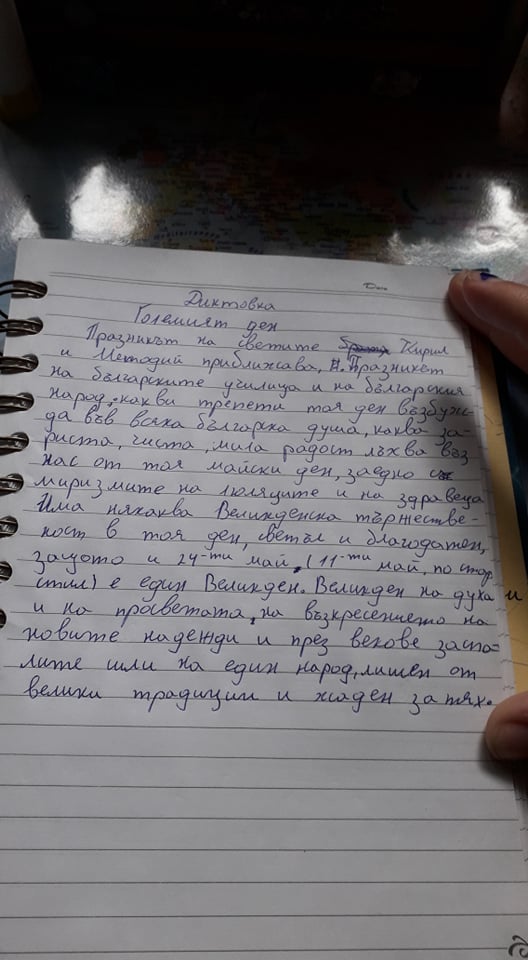 Date
Диктовка
Големият ден
Празникът на светите братя Кирил
и Методий приближава, Празникът
на българските училища и на българския
народ, какви трепети тоя ден възбуж-
да във всяка българска душа, каква за-
риста, чиста, мила радост лъхва въз
нас от тоя майски ден, заедно с
миризмите на люляците и на здравеца
Има някаква Великденска тържестве-
ност в тоя ден, светъл и благодатен,
защото и 24-ти май, (11-ти май, по стар
стил) е един Великден. Великден на духа и
и на просветата, на възкресението на
новите надежди и през векове заспа-
лите или на един народ, лишен от
велики традиции и жаден за тях.